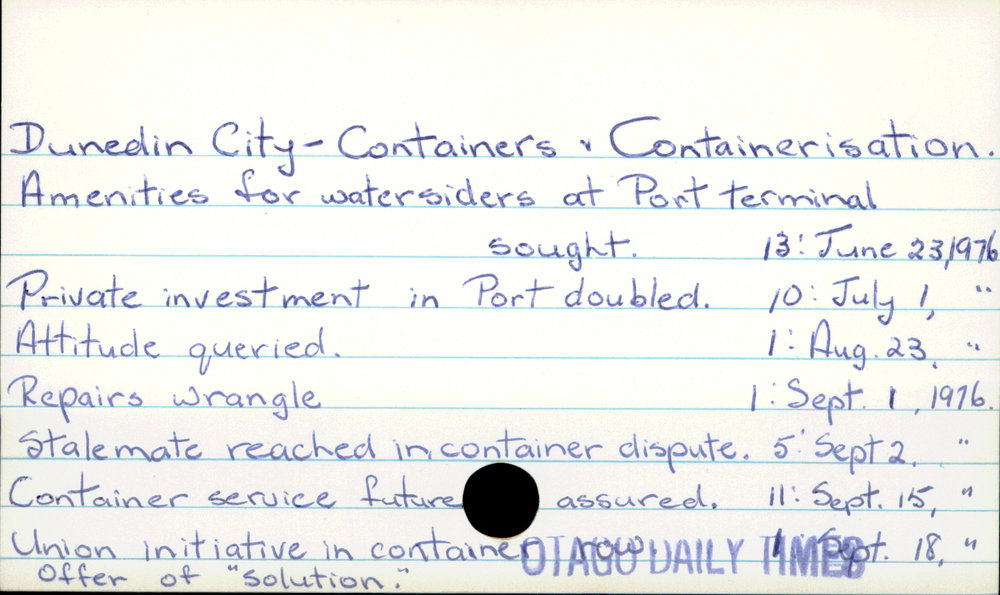 Dunedin City - Containers & Containerisation.
Amenities for watersiders at Port terminal
sought. 13: June 23, 1976
Private investment in Port doubled. 10: July 1, "
Attitude queried. 1: Aug. 23, "
Repairs wrangle 1: Sept. 1, 1976.
Stalemate reached in container dispute. 5: Sept 2. "
Container service future assured. 11: Sept. 15, "
Union initiative in container row. 1: Sept. 18, "
OTAGO DAILY TIMES
Offer of "solution."